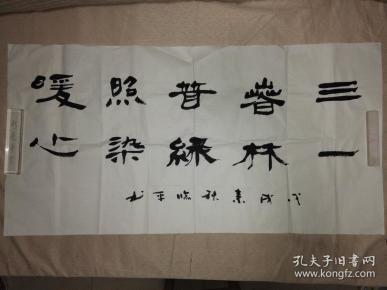 三春普照暖
一林緑染心
戊戌素秋临平书
孔夫子旧书网
www.kongfz.com